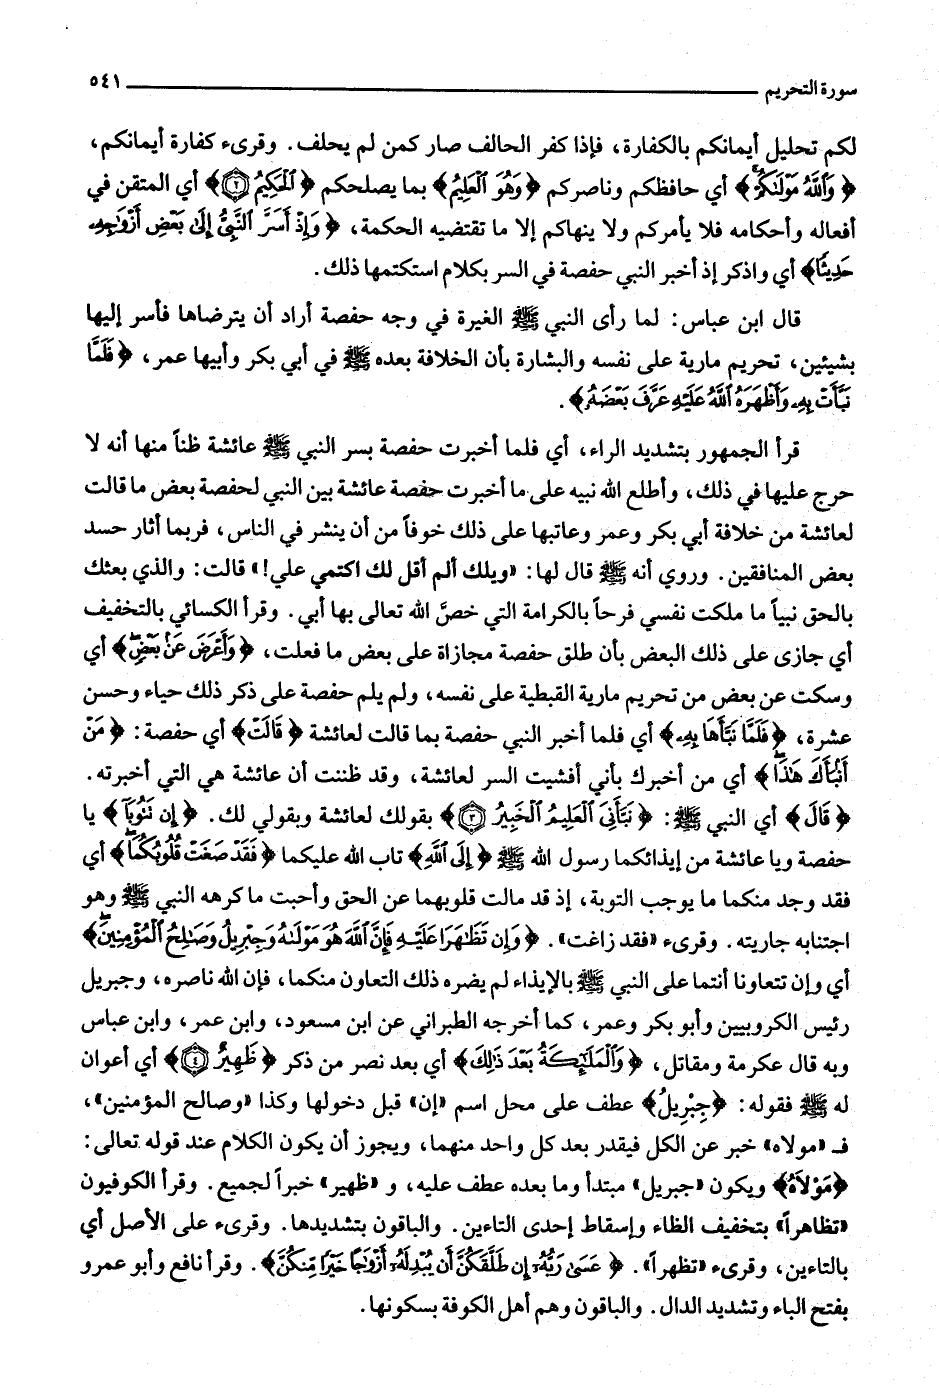 سورة التحريم ٥٤١
لكم تحليل أيمانكم بالكفارة، فإذا كفر الحالف صار كمن لم يحلف. وقرىء كفارة أيمانكم،
﴿وَٱللَّهُ مَوْلَىٰكُمْ﴾ أي حافظكم وناصركم ﴿وَهُوَ ٱلْعَلِيمُ﴾ بما يصلحكم ﴿ٱلْحَكِيمُ ٢﴾ أي المتقن في
أفعاله وأحكامه فلا يأمركم ولا ينهاكم إلا ما تقتضيه الحكمة، ﴿وَإِذْ أَسَرَّ ٱلنَّبِىُّ إِلَىٰ بَعْضِ أَزْوَٰجِهِۦ
حَدِيثًا﴾ أي واذكر إذ أخبر النبي حفصة في السر بكلام استكتمها ذلك.
قال ابن عباس: لما رأى النبي ﷺ الغيرة في وجه حفصة أراد أن يترضاها فأسر إليها
بشيئين، تحريم مارية على نفسه والبشارة بأن الخلافة بعده ﷺ في أبي بكر وأبيها عمر، ﴿فَلَمَّا
نَبَّأَتْ بِهِۦ وَأَظْهَرَهُ ٱللَّهُ عَلَيْهِ عَرَّفَ بَعْضَهُۥ﴾.
قرأ الجمهور بتشديد الراء، أي فلما أخبرت حفصة بسر النبي ﷺ عائشة ظناً منها أنه لا
حرج عليها في ذلك، وأطلع الله نبيه على ما أخبرت حفصة عائشة بين النبي لحفصة بعض ما قالت
لعائشة من خلافة أبي بكر وعمر وعاتبها على ذلك خوفاً من أن ينشر في الناس، فربما أثار حسد
بعض المنافقين. وروي أنه ﷺ قال لها: «ويلك ألم أقل لك اكتمي علي!» قالت: والذي بعثك
بالحق نبياً ما ملكت نفسي فرحاً بالكرامة التي خصَّ الله تعالى بها أبي. وقرأ الكسائي بالتخفيف
أي جازى على ذلك البعض بأن طلق حفصة مجازاة على بعض ما فعلت، ﴿وَأَعْرَضَ عَنۢ بَعْضٍ﴾ أي
وسكت عن بعض من تحريم مارية القبطية على نفسه، ولم يلم حفصة على ذكر ذلك حياء وحسن
عشرة، ﴿فَلَمَّا نَبَّأَهَا بِهِۦ﴾ أي فلما أخبر النبي حفصة بما قالت لعائشة ﴿قَالَتْ﴾ أي حفصة: ﴿مَنْ
أَنۢبَأَكَ هَٰذَا﴾ أي من أخبرك بأني أفشيت السر لعائشة، وقد ظننت أن عائشة هي التي أخبرته.
﴿قَالَ﴾ أي النبي ﷺ: ﴿نَبَّأَنِىَ ٱلْعَلِيمُ ٱلْخَبِيرُ ٣﴾ بقولك لعائشة وبقولي لك. ﴿إِن تَتُوبَآ﴾ يا
حفصة ويا عائشة من إيذائكما رسول الله ﷺ ﴿إِلَى ٱللَّهِ﴾ تاب الله عليكما ﴿فَقَدْ صَغَتْ قُلُوبُكُمَا﴾ أي
فقد وجد منكما ما يوجب التوبة، إذ قد مالت قلوبهما عن الحق وأحبت ما كرهه النبي ﷺ وهو
اجتنابه جاريته. وقرىء «فقد زاغت». ﴿وَإِن تَظَٰهَرَا عَلَيْهِ فَإِنَّ ٱللَّهَ هُوَ مَوْلَىٰهُ وَجِبْرِيلُ وَصَٰلِحُ ٱلْمُؤْمِنِينَ﴾
أي وإن تتعاونا أنتما على النبي ﷺ بالإيذاء لم يضره ذلك التعاون منكما، فإن الله ناصره، وجبريل
رئيس الكروبيين وأبو بكر وعمر، كما أخرجه الطبراني عن ابن مسعود، وابن عمر، وابن عباس
وبه قال عكرمة ومقاتل، ﴿وَٱلْمَلَٰٓئِكَةُ بَعْدَ ذَٰلِكَ﴾ أي بعد نصر من ذكر ﴿ظَهِيرٌ ٤﴾ أي أعوان
له ﷺ فقوله: ﴿جِبْرِيلُ﴾ عطف على محل اسم «إن» قبل دخولها وكذا «وصالح المؤمنين»،
فـ «مولاه» خبر عن الكل فيقدر بعد كل واحد منهما، ويجوز أن يكون الكلام عند قوله تعالى:
﴿مَوْلاَهُ﴾ ويكون «جبريل» مبتدأ وما بعده عطف عليه، و «ظهير» خبراً لجميع. وقرأ الكوفيون
«تظاهرا» بتخفيف الظاء وإسقاط إحدى التاءين. والباقون بتشديدها. وقرىء على الأصل أي
بالتاءين، وقرىء «تظهرا». ﴿عَسَىٰ رَبُّهُۥٓ إِن طَلَّقَكُنَّ أَن يُبْدِلَهُۥٓ أَزْوَٰجًا خَيْرًا مِّنكُنَّ﴾. وقرأ نافع وأبو عمرو
بفتح الباء وتشديد الدال. والباقون وهم أهل الكوفة بسكونها.